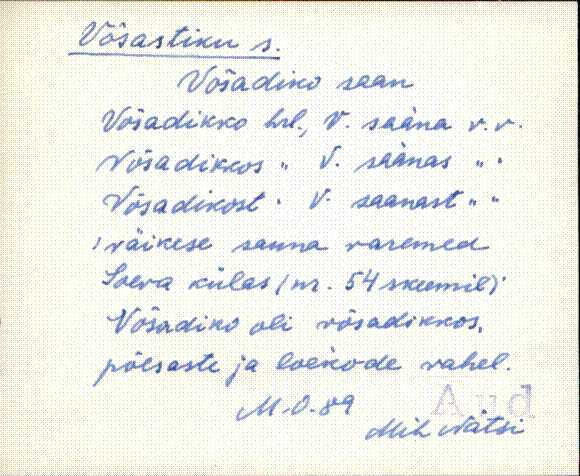 Võsastiku s.
Võsadiko saan
Võsadikko hrl., V. saàna r.r.
Võsadikkos " V. saànas " "
Võsadikost " V. saanast " "
'väikese sauna varemed
Soeva külas (nr. 54 skeemil)'
Võsadiko oli võsadikkos,
põesaste ja loekode vahel.
M.O. 89
Aud
Mih Nätsi